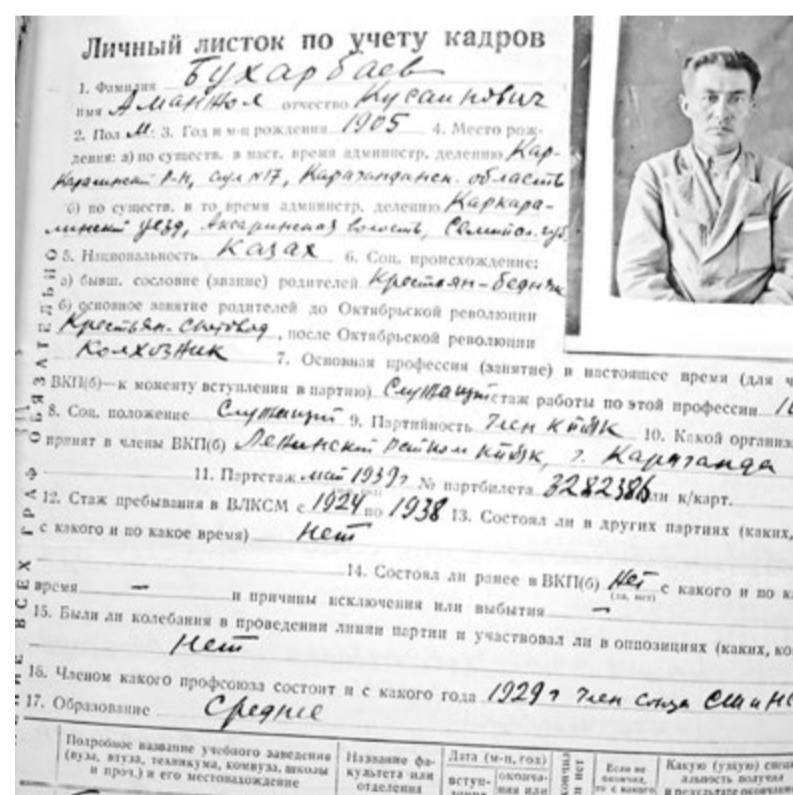 Личный листок по учету кадров
1. Фамилия Бухарбаев
имя Аманжол отчество Кусаинович
2. Пол М. 3. Год и м-ц рождения 1905 4. Место рож-
дения: а) по существ. в наст. время администр. делению Кар-
каралинский р-н, аул №17, Карагандинск. область
б) по существ. в то время администр. делению Каркара-
линский уезд, волость, Семипол. губ.
5. Национальность Казах 6. Соц. происхождение:
а) бывш. сословие (звание) родителей Крестьян-бедняк
б) основное занятие родителей до Октябрьской революции
Крестьян-скотовод, после Октябрьской революции
Колхозник 7. Основная профессия (занятие) в настоящее время (для
ВКП(б)—к моменту вступления в партию) Служащий стаж работы по этой профессии
8. Соц. положение Служащий 9. Партийность Член 10. Какой организ
принят в члены ВКП(б) Ленинский райком г. Караганда
11. Партстаж май 1939 г № партбилета 3282386 или к/карт.
12. Стаж пребывания в ВЛКСМ с 1924 по 1938 13. Состоял ли в других партиях (каких,
с какого и по какое время) Нет
14. Состоял ли ранее в ВКП(б) Нет с какого и по к
(да, нет)
время — и причины исключения или выбытия —
15. Были ли колебания в проведении линии партии и участвовал ли в оппозициях (каких, ко
Нет
16. Членом какого профсоюза состоит и с какого года 1929 г Член союза
17. Образование Среднее
Подробное название учебного заведения
(вуза, втуза, техникума, комвуза, школы
и проч.) и его местонахождение
Название фа-
культета или
отделения
Дата (м-ц, год)
вступ-
оконча-
ния или
Если не
окончил,
то с какого
Какую (узкую) специ
альность получил
в результате окончани
ВСЕХ ГРАФ ОБЯЗАТЕЛЬНО